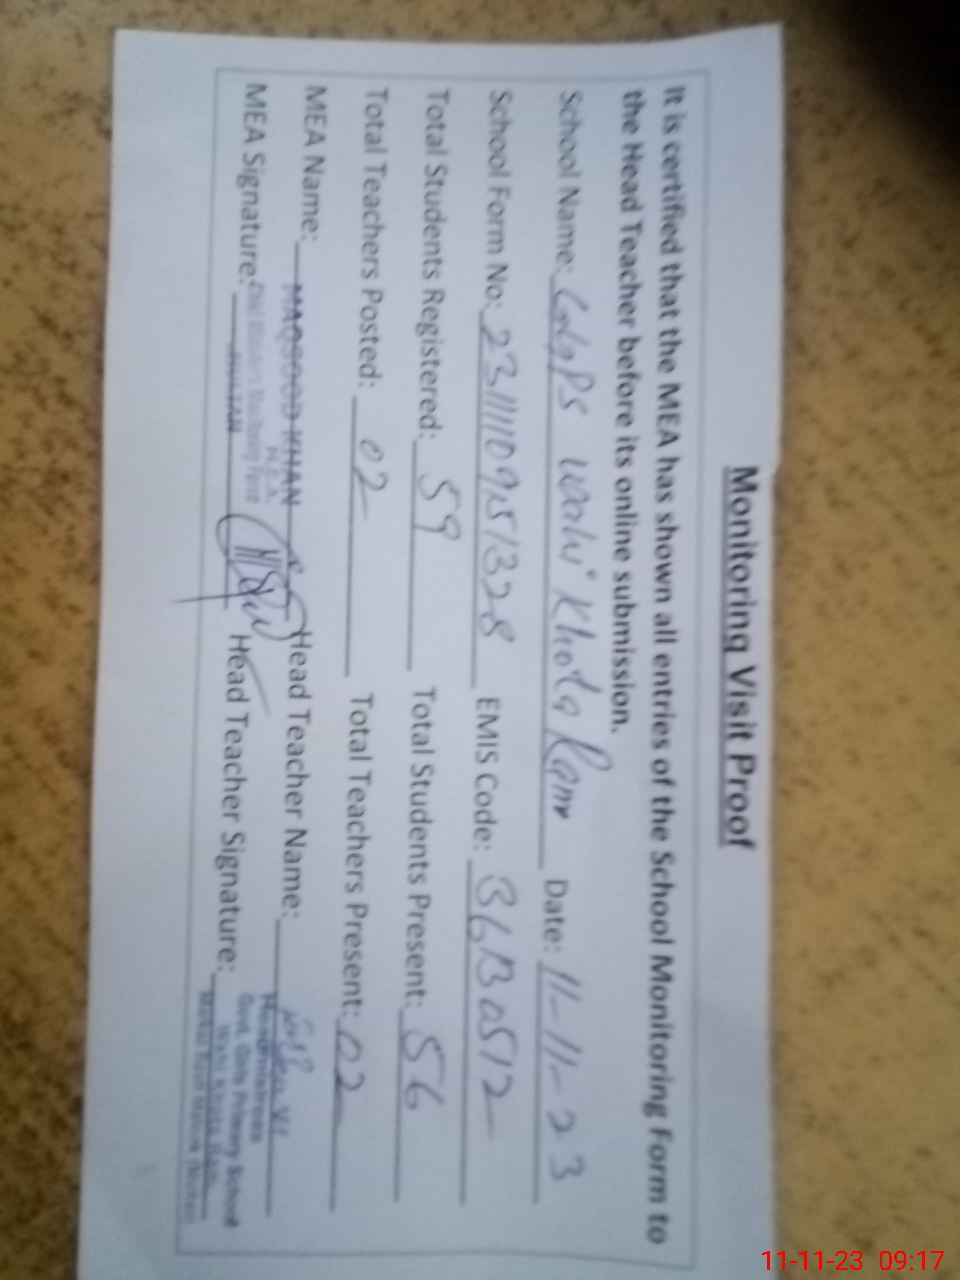 Monitoring Visit Proof
It is certified that the MEA has shown all entries of the School Monitoring Form to
the Head Teacher before its online submission.
School Name: GGPS Wahi Khoda Ram Date: 11-11-23
School Form No: EMIS Code: 36130512
Total Students Registered: 59 Total Students Present: 56
Total Teachers Posted: 02 Total Teachers Present: 02
MEA Name: MAQSOOD KHAN Head Teacher Name:
M.E.A Headmistress
MEA Signature: Head Teacher Signature:
Govt. Girls Primary School
11-11-23 09:17